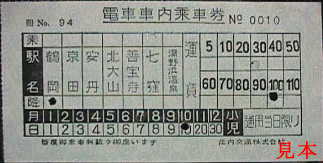 冊 No. 94 電車車内乗車券 No 0010
乗 鶴 京 安 北 善 七 湯野浜温泉 運 5 10 20 30 40 50
駅 大 宝
名 岡 田 丹 山 寺 窪 賃 60 70 80 90 100 110
月 1 2 3 4 5 6 7 8 9 10 11 12 小児 通用当日限り
日 1 2 3 4 5 6 7 8 9 10 20 30
庄内交通株式会社
見本